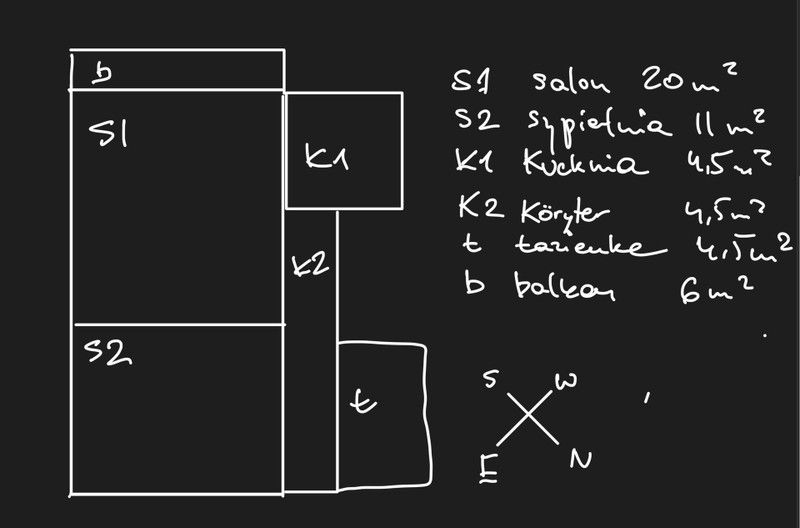 b
S1
K1
K2
S2
t
S1 salon 20 m²
S2 sypielnia 11 m²
K1 Kuchnia 4,5 m²
K2 Köryter 4,5 m²
t tazienke 4,5 m²
b balkon 6 m²
S W
E N